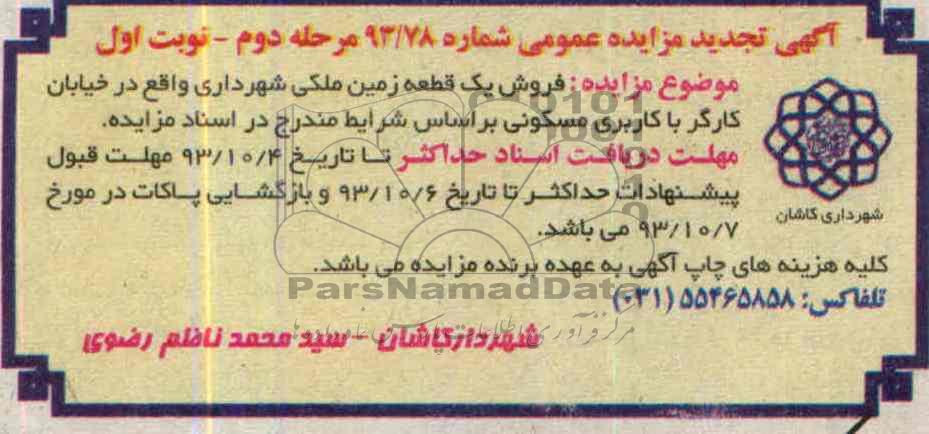 آگهی تجدید مزایده عمومی شماره ۹۳/۷۸ مرحله دوم - نوبت اول
موضوع مزایده: فروش یک قطعه زمین ملکی شهرداری واقع در خیابان
کارگر با کاربری مسکونی براساس شرایط مندرج در اسناد مزایده.
مهلت دریافت اسناد حداکثر تا تاریخ ۹۳/۱۰/۴ مهلت قبول
پیشنهادات حداکثر تا تاریخ ۹۳/۱۰/۶ و بازگشایی پاکات در مورخ
۹۳/۱۰/۷ می باشد.
شهرداری کاشان
کلیه هزینه های چاپ آگهی به عهده برنده مزایده می باشد.
تلفاکس: ۵۵۴۶۵۸۵۸ (۰۳۱)
ParsNamadData
شهردار کاشان - سید محمد ناظم رضوی